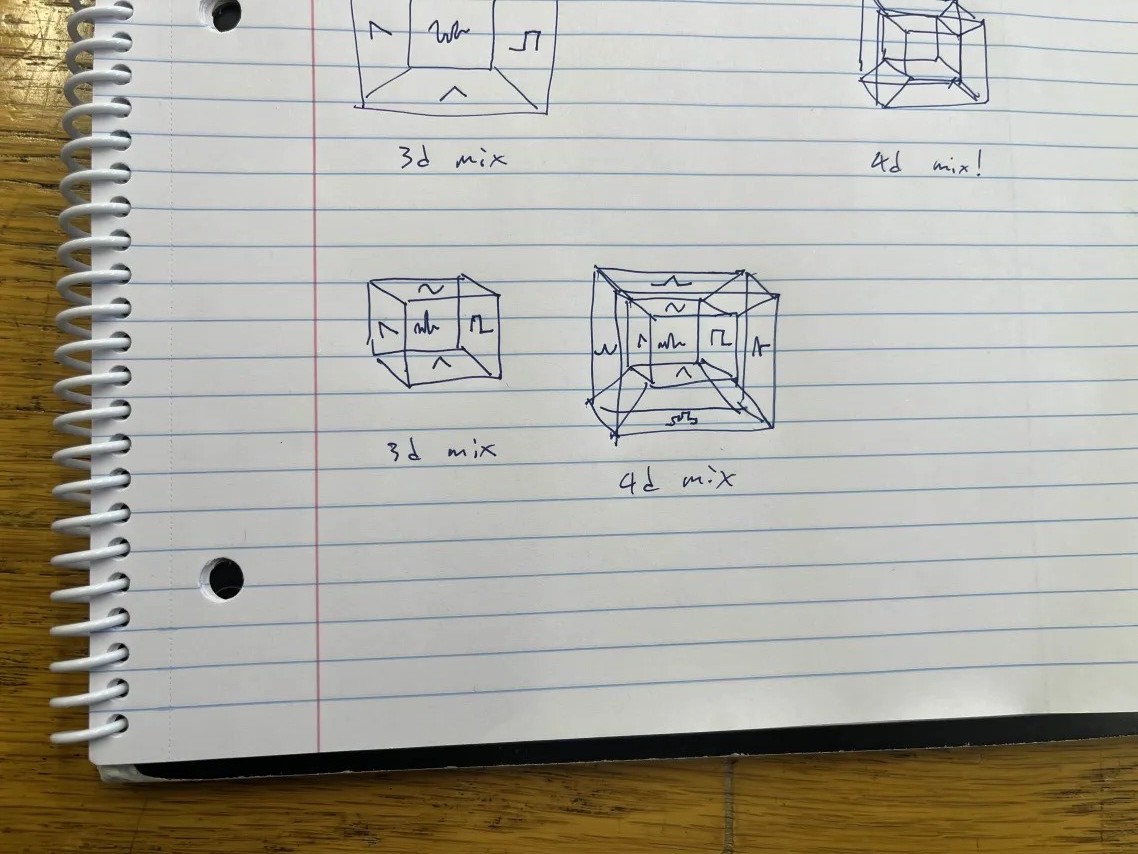 3d mix
4d mix!
3d mix
4d mix